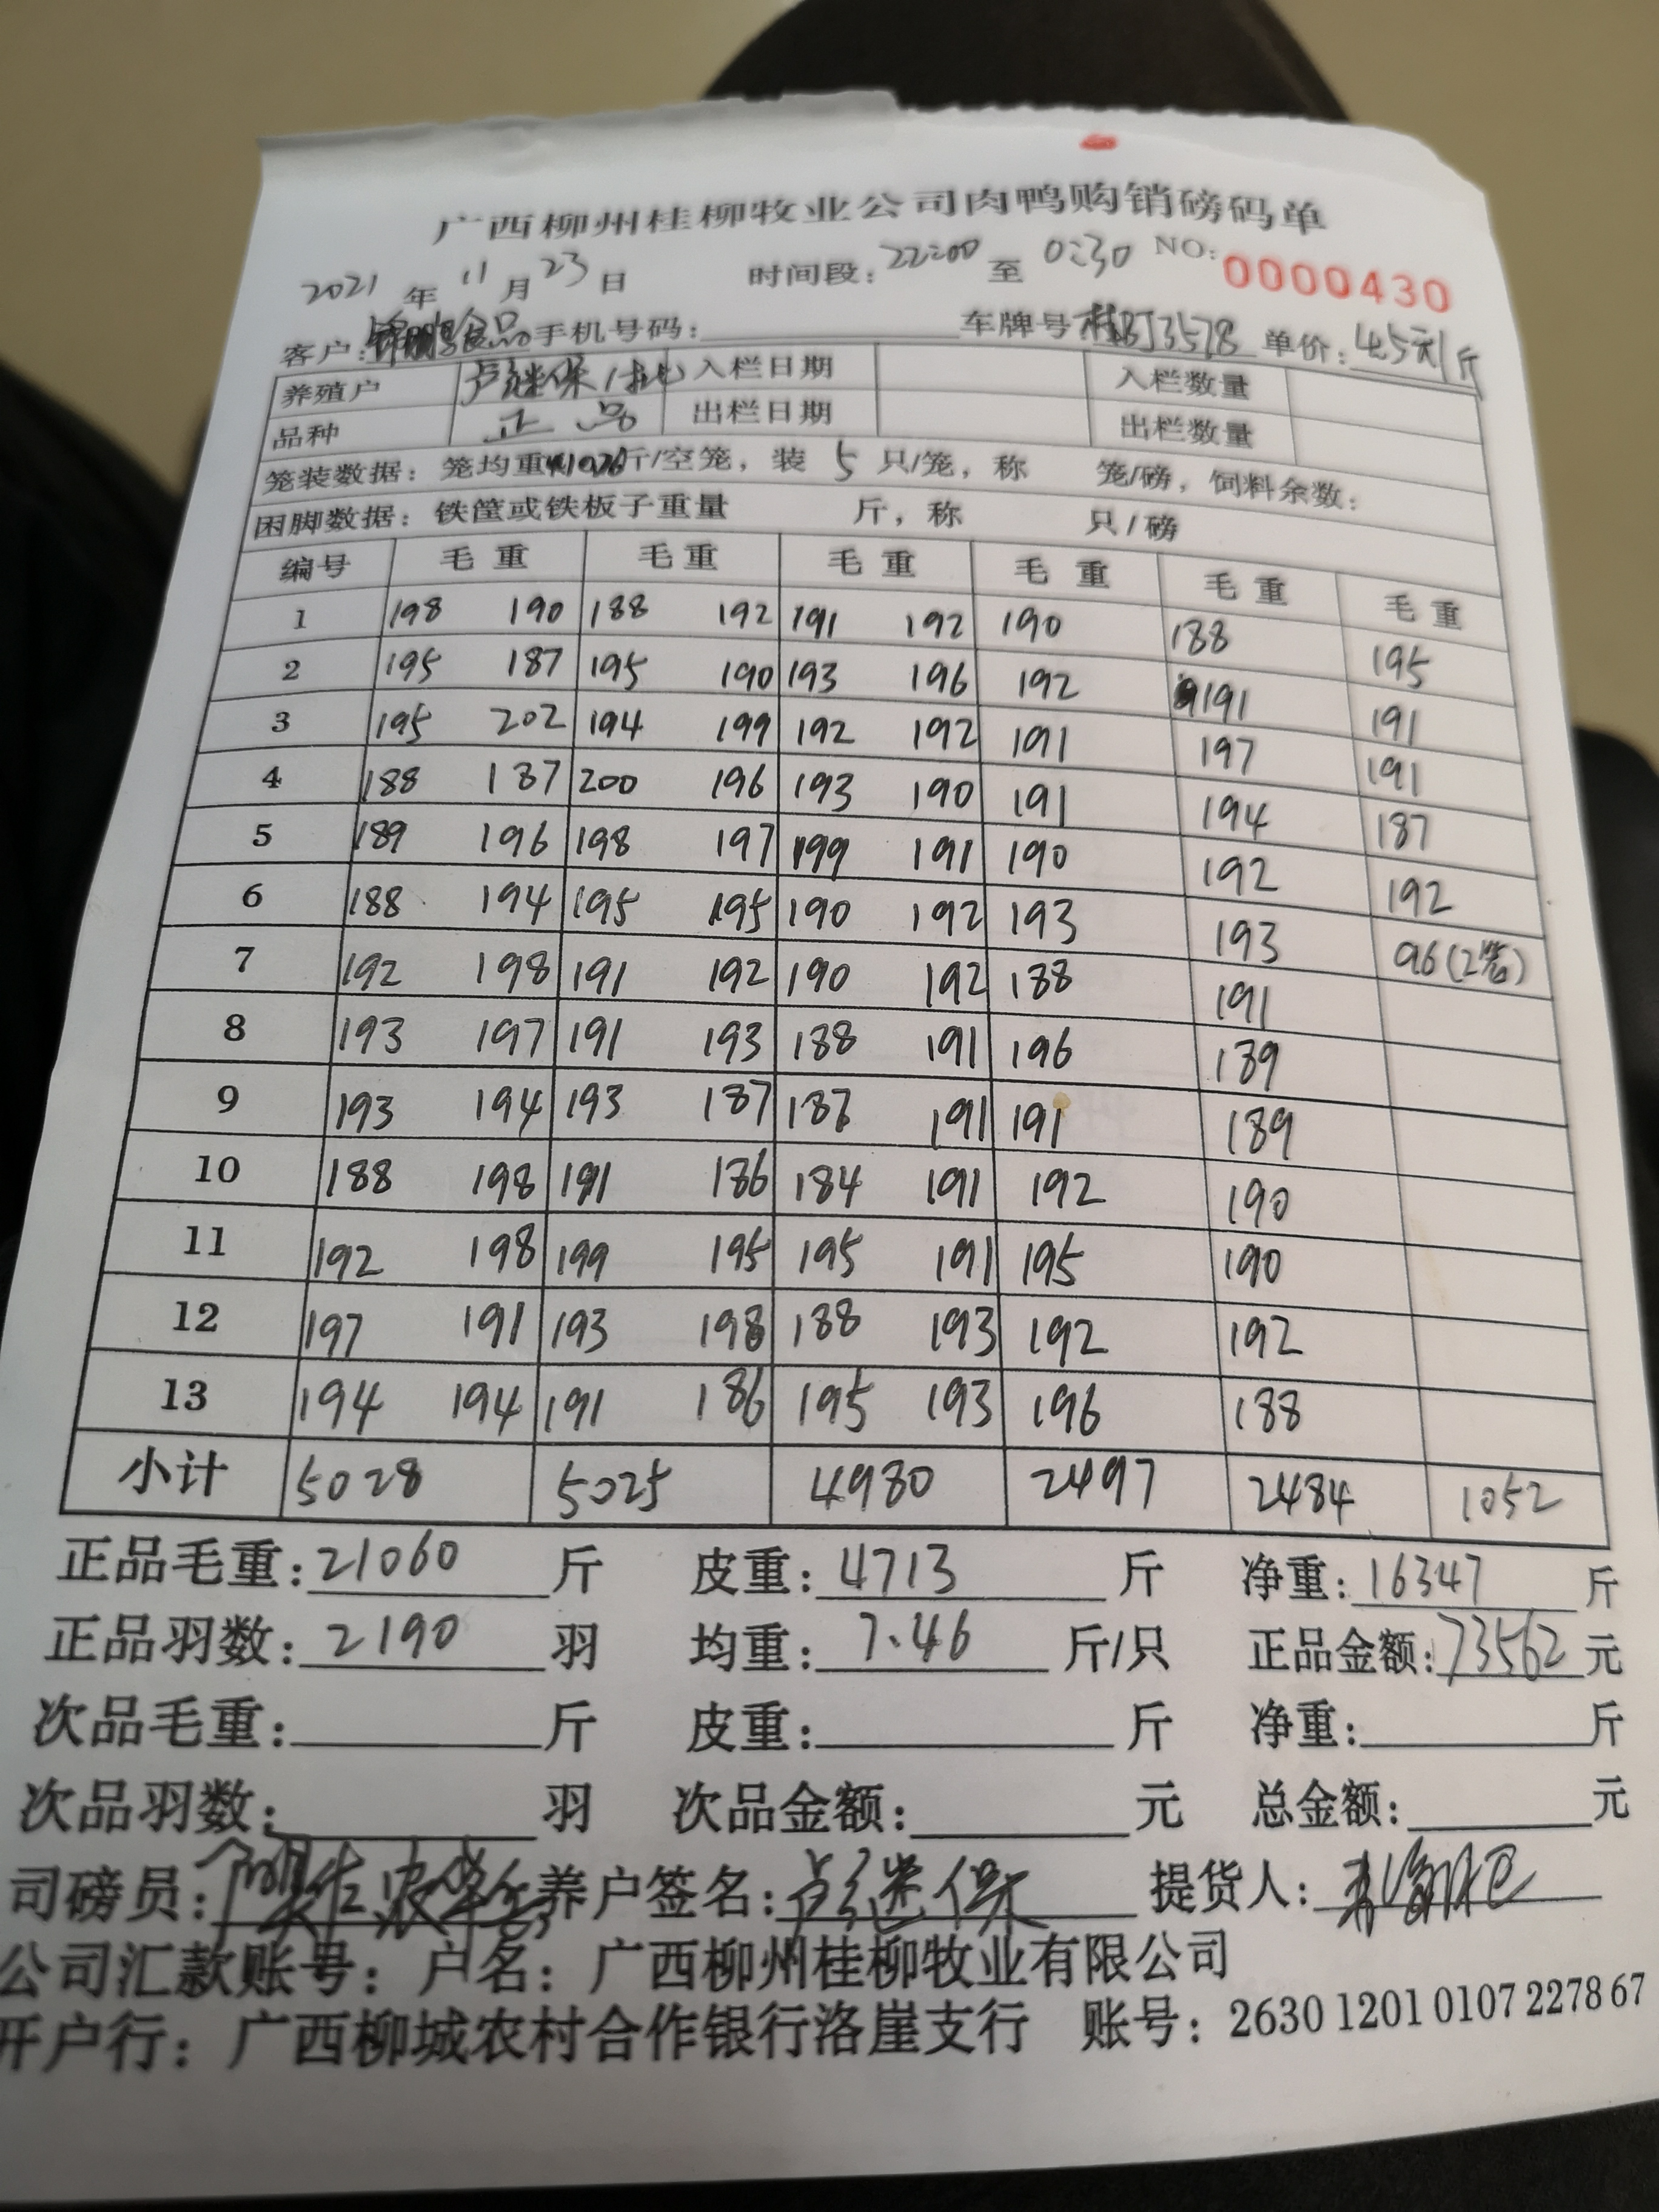 广西柳州桂柳牧业公司肉鸭购销磅码单
2021 年 11 月 23 日 时间段: 22:00 至 0:30 NO: 0000430
客户: 食品 手机号码: 车牌号 桂BJ3578 单价: 4.5元/斤
养殖户 卢继保 入栏日期 入栏数量
品种 正品 出栏日期 出栏数量
笼装数据: 笼均重 斤/空笼, 装 5 只/笼, 称 笼/磅, 饲料余数:
困脚数据: 铁筐或铁板子重量 斤, 称 只/磅
编号 毛重 毛重 毛重 毛重 毛重 毛重
1 198 190 188 192 191 192 190 188 195
2 195 187 195 190 193 196 192 191 191
3 195 202 194 199 192 192 191 197 191
4 188 187 200 196 193 190 191 194 187
5 189 196 198 197 199 191 190 192 192
6 188 194 195 195 190 192 193 193 96(2笼)
7 192 198 191 192 190 192 188 191
8 193 197 191 193 188 191 196 189
9 193 194 193 187 187 191 191 189
10 188 198 191 186 184 191 192 190
11 192 198 199 195 195 191 195 190
12 197 191 193 198 188 193 192 192
13 194 194 191 186 195 193 196 188
小计 5028 5025 4980 2497 2484 1052
正品毛重: 21060 斤 皮重: 4713 斤 净重: 16347 斤
正品羽数: 2190 羽 均重: 7.46 斤/只 正品金额: 73562 元
次品毛重: 斤 皮重: 斤 净重: 斤
次品羽数: 羽 次品金额: 元 总金额: 元
司磅员: 养户签名: 卢继保 提货人:
公司汇款账号: 户名: 广西柳州桂柳牧业有限公司
开户行: 广西柳城农村合作银行洛崖支行 账号: 2630 1201 0107 2278 67